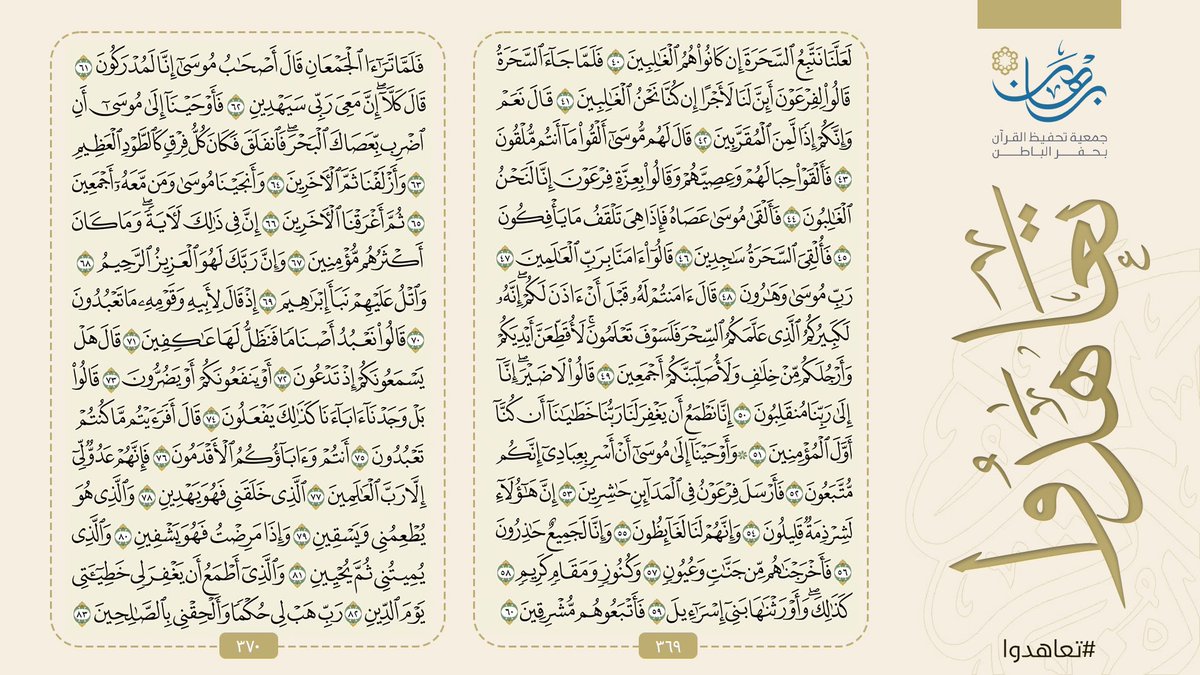 برهان
جمعية تحفيظ القرآن
بحفر الباطن
تعاهدوا
#تعاهدوا
لَعَلَّنَا نَتَّبِعُ السَّحَرَةَ إِن كَانُوا۟ هُمُ الْغَٰلِبِينَ ٤٠ فَلَمَّا جَآءَ السَّحَرَةُ
قَالُوا۟ لِفِرْعَوْنَ أَئِنَّ لَنَا لَأَجْرًا إِن كُنَّا نَحْنُ الْغَٰلِبِينَ ٤١ قَالَ نَعَمْ
وَإِنَّكُمْ إِذًا لَّمِنَ الْمُقَرَّبِينَ ٤٢ قَالَ لَهُم مُّوسَىٰٓ أَلْقُوا۟ مَآ أَنتُم مُّلْقُونَ
٤٣ فَأَلْقَوْا۟ حِبَالَهُمْ وَعِصِيَّهُمْ وَقَالُوا۟ بِعِزَّةِ فِرْعَوْنَ إِنَّا لَنَحْنُ
الْغَٰلِبُونَ ٤٤ فَأَلْقَىٰ مُوسَىٰ عَصَاهُ فَإِذَا هِىَ تَلْقَفُ مَا يَأْفِكُونَ
٤٥ فَأُلْقِىَ السَّحَرَةُ سَٰجِدِينَ ٤٦ قَالُوٓا۟ ءَامَنَّا بِرَبِّ الْعَٰلَمِينَ ٤٧
رَبِّ مُوسَىٰ وَهَٰرُونَ ٤٨ قَالَ ءَامَنتُمْ لَهُۥ قَبْلَ أَنْ ءَاذَنَ لَكُمْ ۖ إِنَّهُۥ
لَكَبِيرُكُمُ الَّذِى عَلَّمَكُمُ السِّحْرَ فَلَسَوْفَ تَعْلَمُونَ ۚ لَأُقَطِّعَنَّ أَيْدِيَكُمْ
وَأَرْجُلَكُم مِّنْ خِلَٰفٍ وَلَأُصَلِّبَنَّكُمْ أَجْمَعِينَ ٤٩ قَالُوا۟ لَا ضَيْرَ ۖ إِنَّآ
إِلَىٰ رَبِّنَا مُنقَلِبُونَ ٥٠ إِنَّا نَطْمَعُ أَن يَغْفِرَ لَنَا رَبُّنَا خَطَٰيَٰنَآ أَن كُنَّآ
أَوَّلَ الْمُؤْمِنِينَ ٥١ ۞ وَأَوْحَيْنَآ إِلَىٰ مُوسَىٰٓ أَنْ أَسْرِ بِعِبَادِىٓ إِنَّكُم
مُّتَّبَعُونَ ٥٢ فَأَرْسَلَ فِرْعَوْنُ فِى الْمَدَآئِنِ حَٰشِرِينَ ٥٣ إِنَّ هَٰٓؤُلَآءِ
لَشِرْذِمَةٌ قَلِيلُونَ ٥٤ وَإِنَّهُمْ لَنَا لَغَآئِظُونَ ٥٥ وَإِنَّا لَجَمِيعٌ حَٰذِرُونَ
٥٦ فَأَخْرَجْنَٰهُم مِّن جَنَّٰتٍ وَعُيُونٍ ٥٧ وَكُنُوزٍ وَمَقَامٍ كَرِيمٍ ٥٨
كَذَٰلِكَ ۖ وَأَوْرَثْنَٰهَا بَنِىٓ إِسْرَٰٓءِيلَ ٥٩ فَأَتْبَعُوهُم مُّشْرِقِينَ ٦٠
٣٦٩
فَلَمَّا تَرَٰٓءَا الْجَمْعَانِ قَالَ أَصْحَٰبُ مُوسَىٰٓ إِنَّا لَمُدْرَكُونَ ٦١
قَالَ كَلَّآ ۖ إِنَّ مَعِىَ رَبِّى سَيَهْدِينِ ٦٢ فَأَوْحَيْنَآ إِلَىٰ مُوسَىٰٓ أَنِ
اضْرِب بِّعَصَاكَ الْبَحْرَ ۖ فَانفَلَقَ فَكَانَ كُلُّ فِرْقٍ كَالطَّوْدِ الْعَظِيمِ
٦٣ وَأَزْلَفْنَا ثَمَّ الْءَاخَرِينَ ٦٤ وَأَنجَيْنَا مُوسَىٰ وَمَن مَّعَهُۥٓ أَجْمَعِينَ
٦٥ ثُمَّ أَغْرَقْنَا الْءَاخَرِينَ ٦٦ إِنَّ فِى ذَٰلِكَ لَءَايَةً ۖ وَمَا كَانَ
أَكْثَرُهُم مُّؤْمِنِينَ ٦٧ وَإِنَّ رَبَّكَ لَهُوَ الْعَزِيزُ الرَّحِيمُ ٦٨
وَاتْلُ عَلَيْهِمْ نَبَأَ إِبْرَٰهِيمَ ٦٩ إِذْ قَالَ لِأَبِيهِ وَقَوْمِهِۦ مَا تَعْبُدُونَ
٧٠ قَالُوا۟ نَعْبُدُ أَصْنَامًا فَنَظَلُّ لَهَا عَٰكِفِينَ ٧١ قَالَ هَلْ
يَسْمَعُونَكُمْ إِذْ تَدْعُونَ ٧٢ أَوْ يَنفَعُونَكُمْ أَوْ يَضُرُّونَ ٧٣ قَالُوا۟
بَلْ وَجَدْنَآ ءَابَآءَنَا كَذَٰلِكَ يَفْعَلُونَ ٧٤ قَالَ أَفَرَءَيْتُم مَّا كُنتُمْ
تَعْبُدُونَ ٧٥ أَنتُمْ وَءَابَآؤُكُمُ الْأَقْدَمُونَ ٧٦ فَإِنَّهُمْ عَدُوٌّ لِّىٓ
إِلَّا رَبَّ الْعَٰلَمِينَ ٧٧ الَّذِى خَلَقَنِى فَهُوَ يَهْدِينِ ٧٨ وَالَّذِى هُوَ
يُطْعِمُنِى وَيَسْقِينِ ٧٩ وَإِذَا مَرِضْتُ فَهُوَ يَشْفِينِ ٨٠ وَالَّذِى
يُمِيتُنِى ثُمَّ يُحْيِينِ ٨١ وَالَّذِىٓ أَطْمَعُ أَن يَغْفِرَ لِى خَطِيٓـَٔتِى
يَوْمَ الدِّينِ ٨٢ رَبِّ هَبْ لِى حُكْمًا وَأَلْحِقْنِى بِالصَّٰلِحِينَ ٨٣
٣٧٠